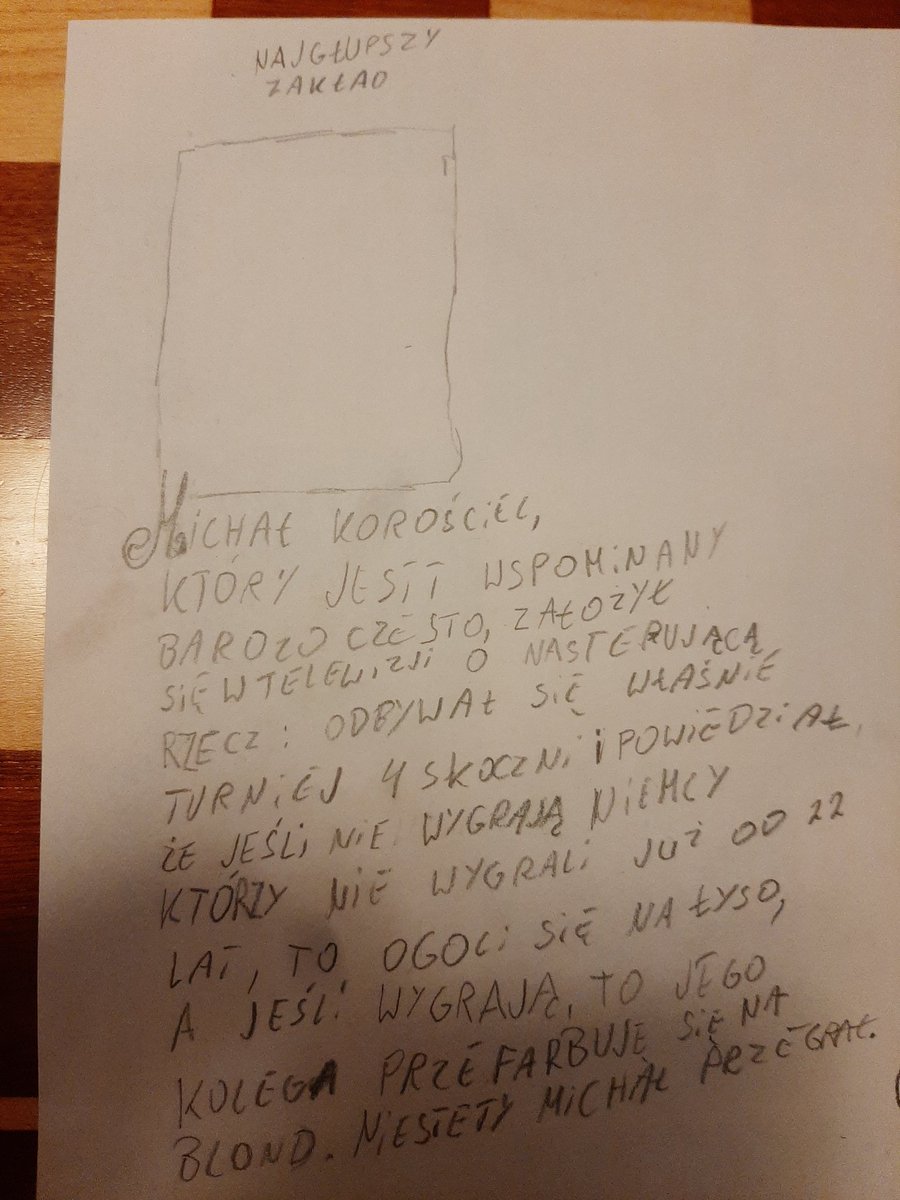 NAJGŁUPSZY
ZAKŁAD
MICHAŁ KOROŚCIEL,
KTÓRY JESTT WSPOMINANY
BARDZO CZĘSTO, ZAŁOŻYŁ
SIĘ W TELEWIZJI O NASTĘPUJĄCĄ
RZECZ: ODBYWAŁ SIĘ WŁAŚNIE
TURNIEJ 4 SKOCZNI I POWIEDZIAŁ,
ŻE JEŚLI NIE WYGRAJĄ NIEMCY
KTÓRZY NIE WYGRALI JUŻ OD 22
LAT, TO OGOLI SIĘ NA ŁYSO,
A JEŚLI WYGRAJĄ, TO JEGO
KOLEGA PRZEFARBUJE SIĘ NA
BLOND. NIESTETY MICHAŁ PRZEGRAŁ.